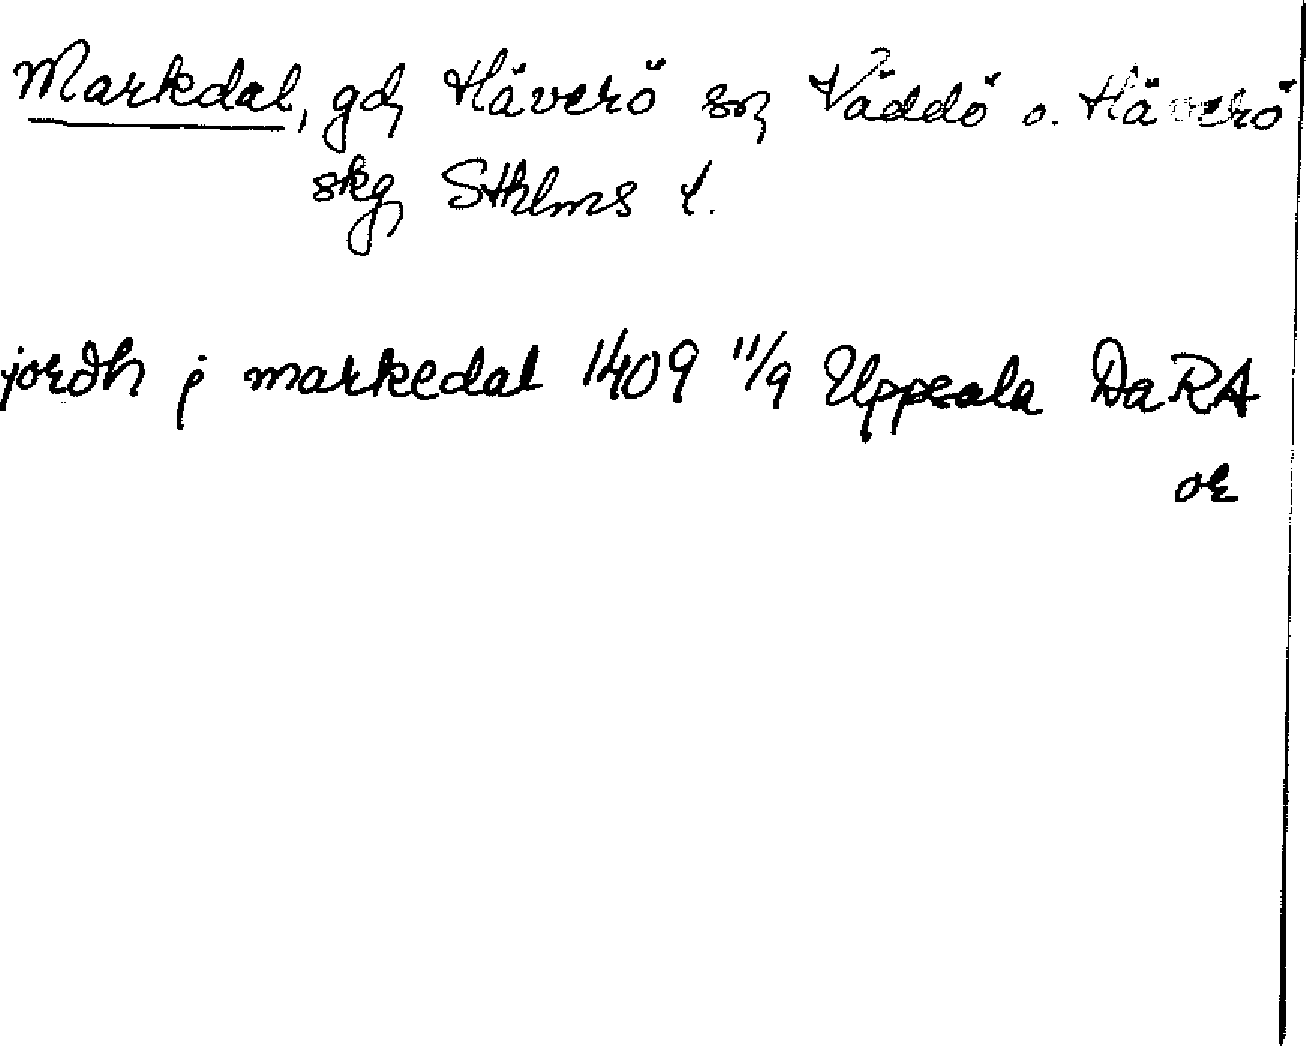 Markdal, gd, Häverö sn, Väddö o. Häverö
skg, Sthlms l.
jordh j markedal 1409 11/9 Uppsala Da RA
or